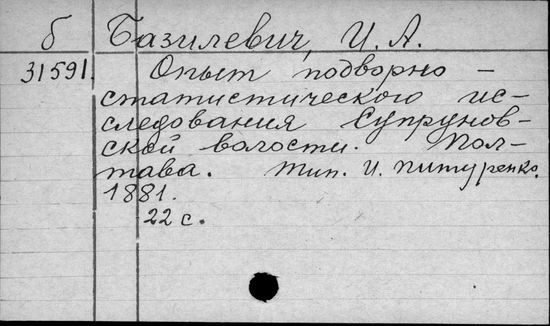 б Базилевич, И. А.
31591. Опыт подворно-
статистического ис-
следования Супрунов-
ской волости. Пол-
тава. Тип. И. Питуренко.
1881.
22 с.